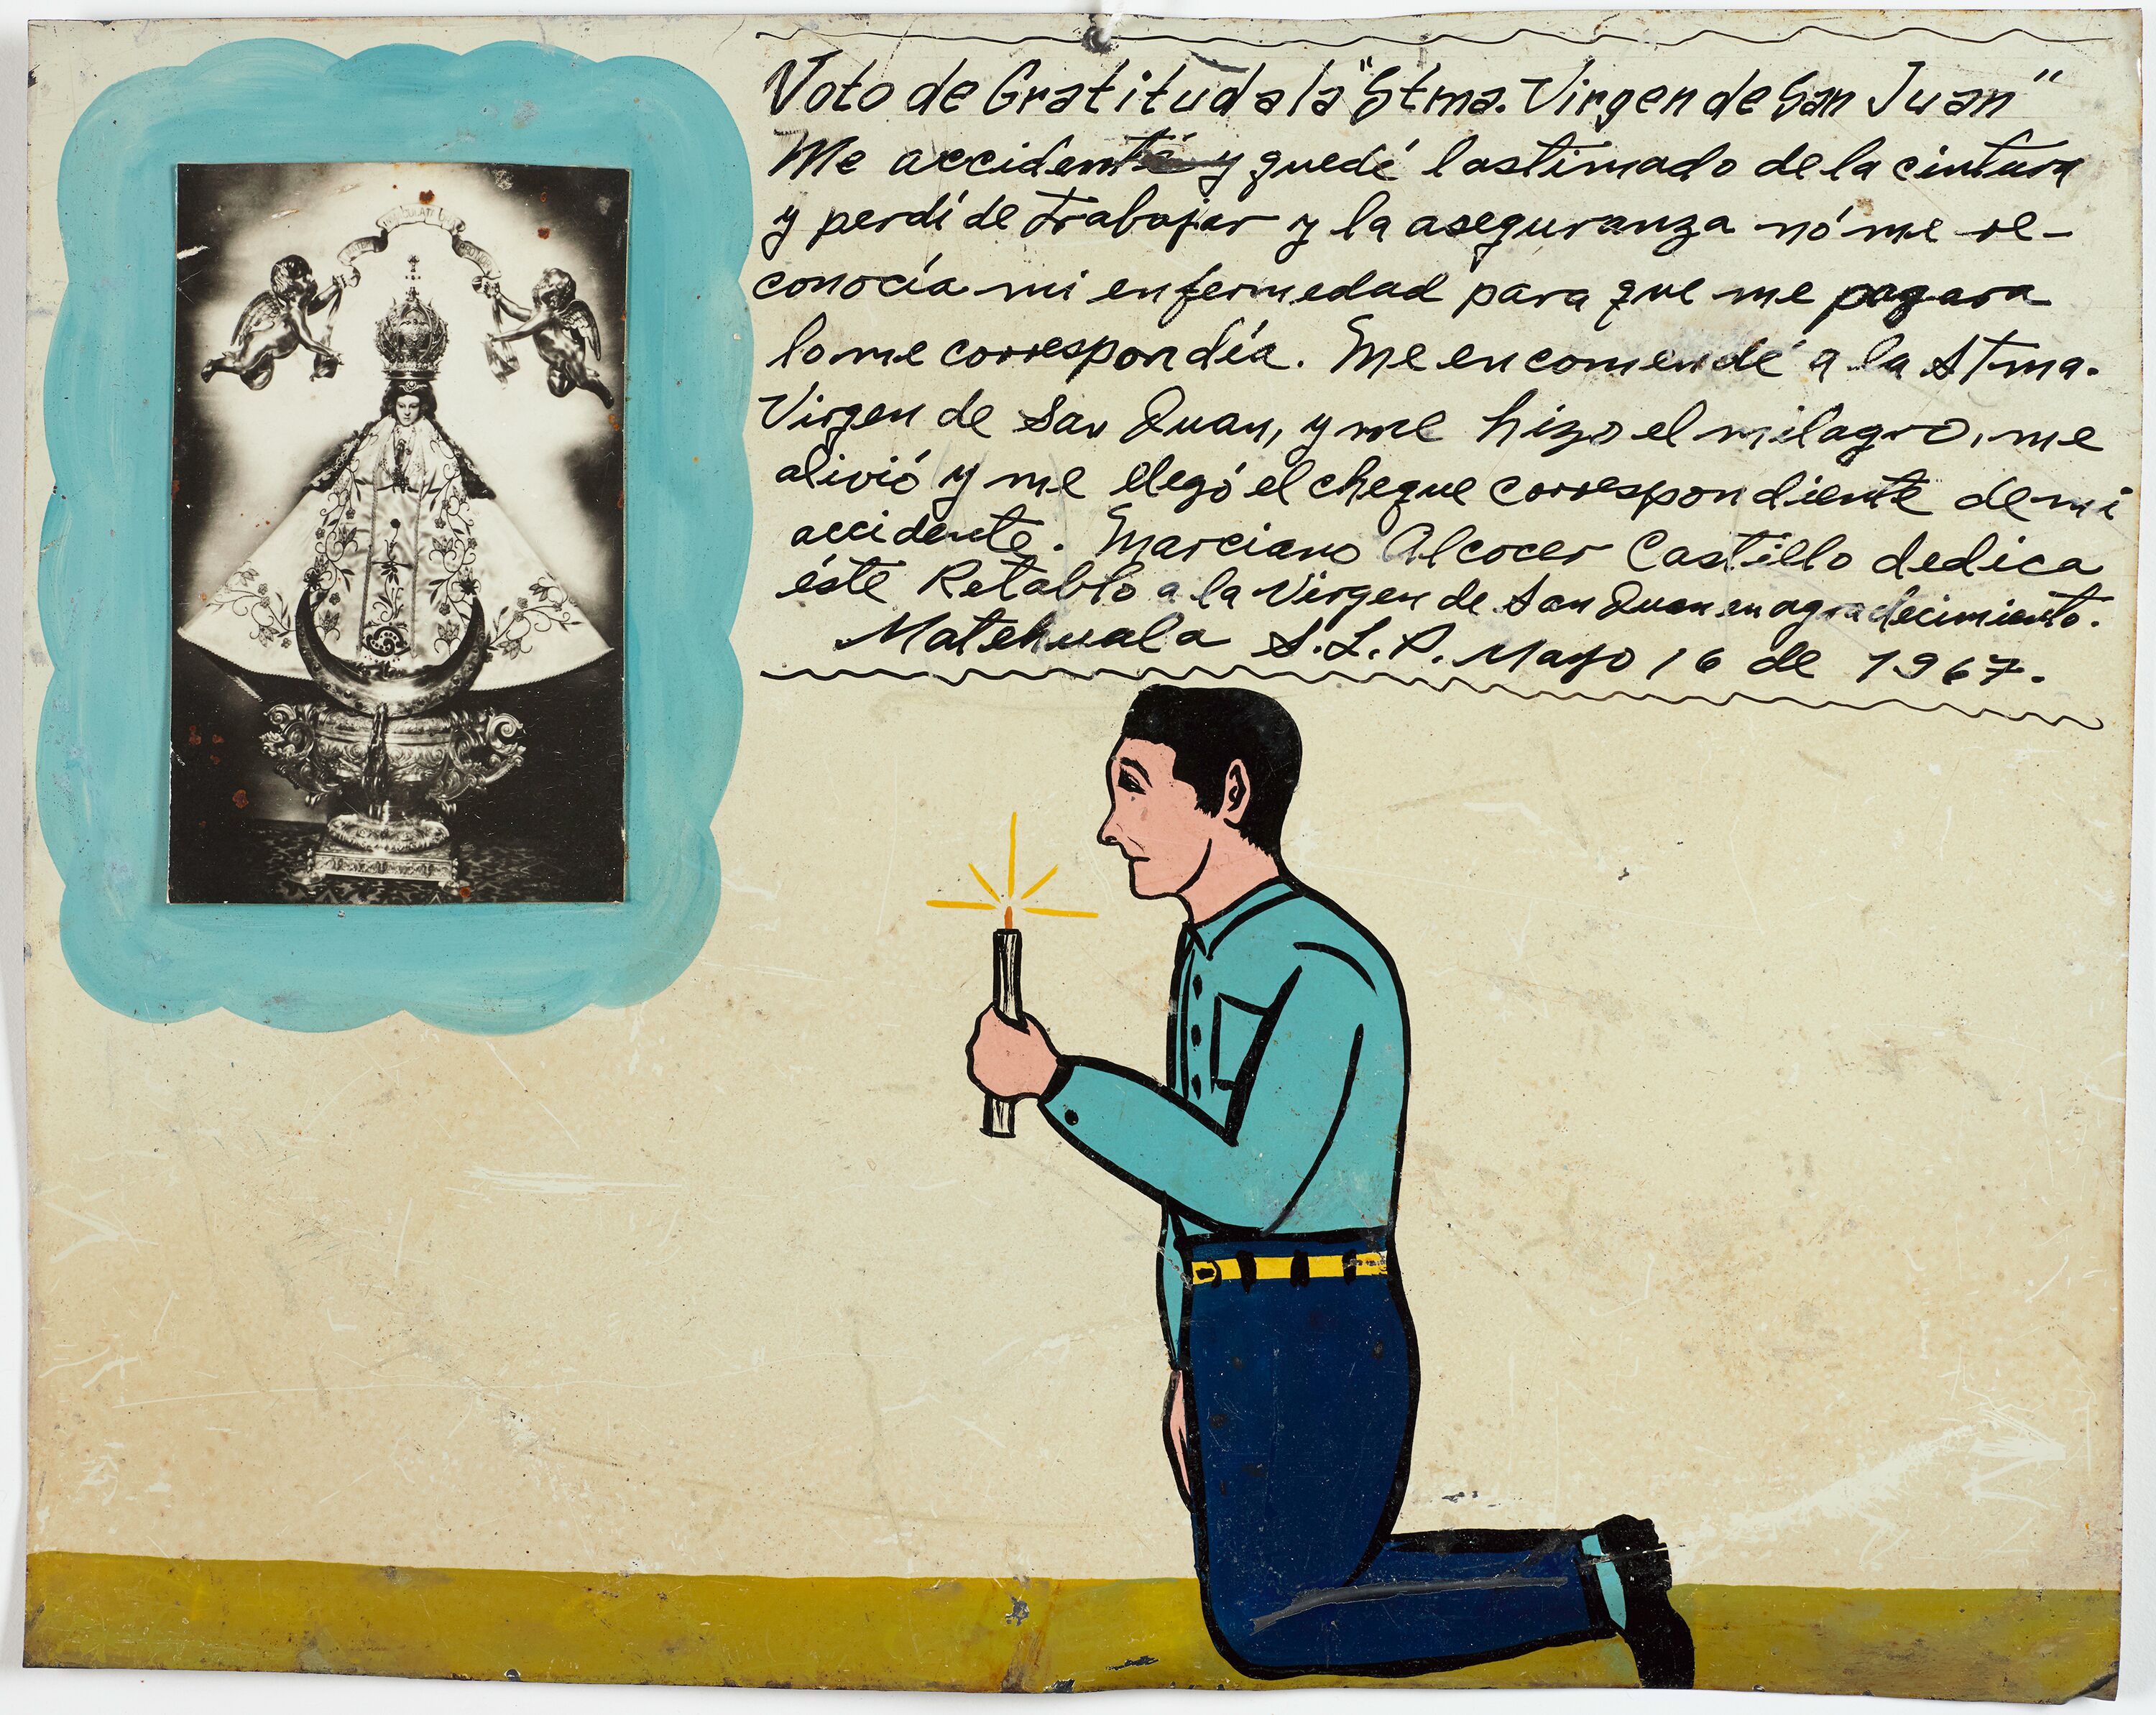 Voto de Gratitud a la "Stma. Virgen de San Juan"
Me accidenté y quedé lastimado de la cintura
y perdí de trabajar y la aseguranza nó me re-
conocía mi enfermedad para que me pagara
lo me correspondía. Me encomendé a la Stma.
Virgen de San Juan, y me hizo el milagro, me
alivió y me llegó el cheque correspondiente de mi
accidente. Marciano Alcocer Castillo dedica
éste Retablo a la Virgen de San Juan en agradecimiento.
Matehuala S.L.P. Mayo 16 de 1967.